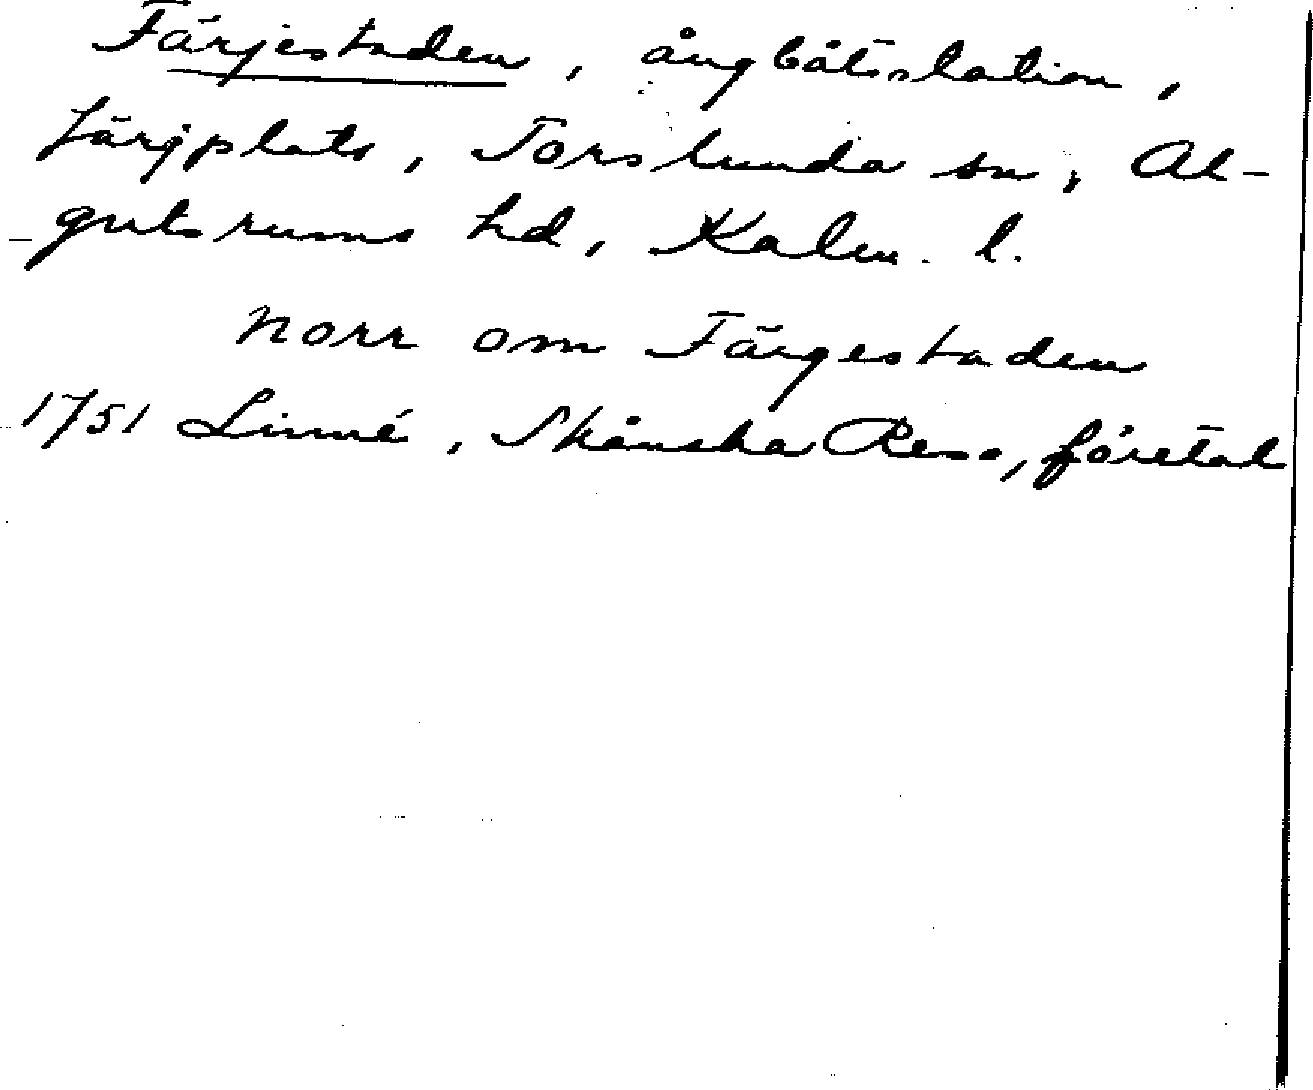 Färjestaden, ångbåtsstation,
färjplats, Torslunda sn, Al-
gutsrums hd, Kalm. l.
norr om Färgestaden
1751 Linné, Skånska Resa, företal